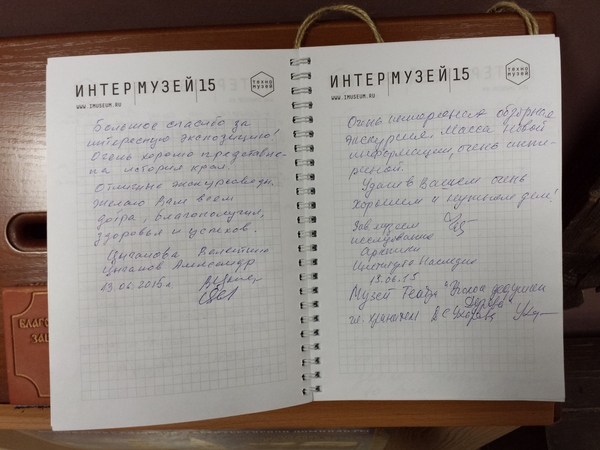 ИНТЕР|МУЗЕЙ|15
WWW.IMUSEUM.RU
техно
музей
Большое спасибо за
интересную экспозицию!
Очень хорошо представле-
на история края.
Отличные экскурсоводы.
Желаю Вам всем
добра, благополучия,
здоровья и успехов.
Цыганова Валентина
Цыганов Александр
13.06.2015г
ИНТЕР|МУЗЕЙ|15
WWW.IMUSEUM.RU
техно
музей
Очень интересная обзорная
экскурсия. Масса новой
информации, очень инте-
ресной.
Удачи в Вашем очень
хорошем и нужном деле!
Зав. музеем
исследования
Арктики
Института Наследия
13.06.15
Музей Театр "
дедушки
гл. хранитель
БЛАГО
ЗА